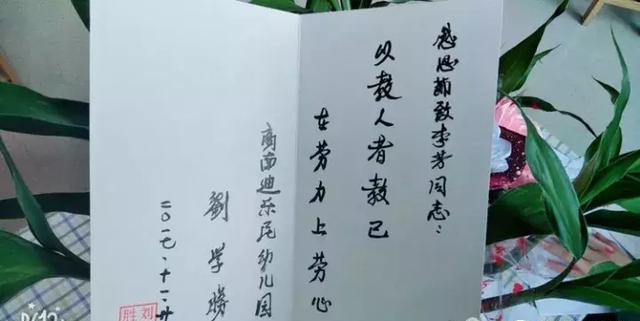 感恩節致李芳同志：
以教人者教己
在劳力上劳心
商南迪乐尼幼儿园
劉学勝
二〇一七、十一、廿
刘
胜